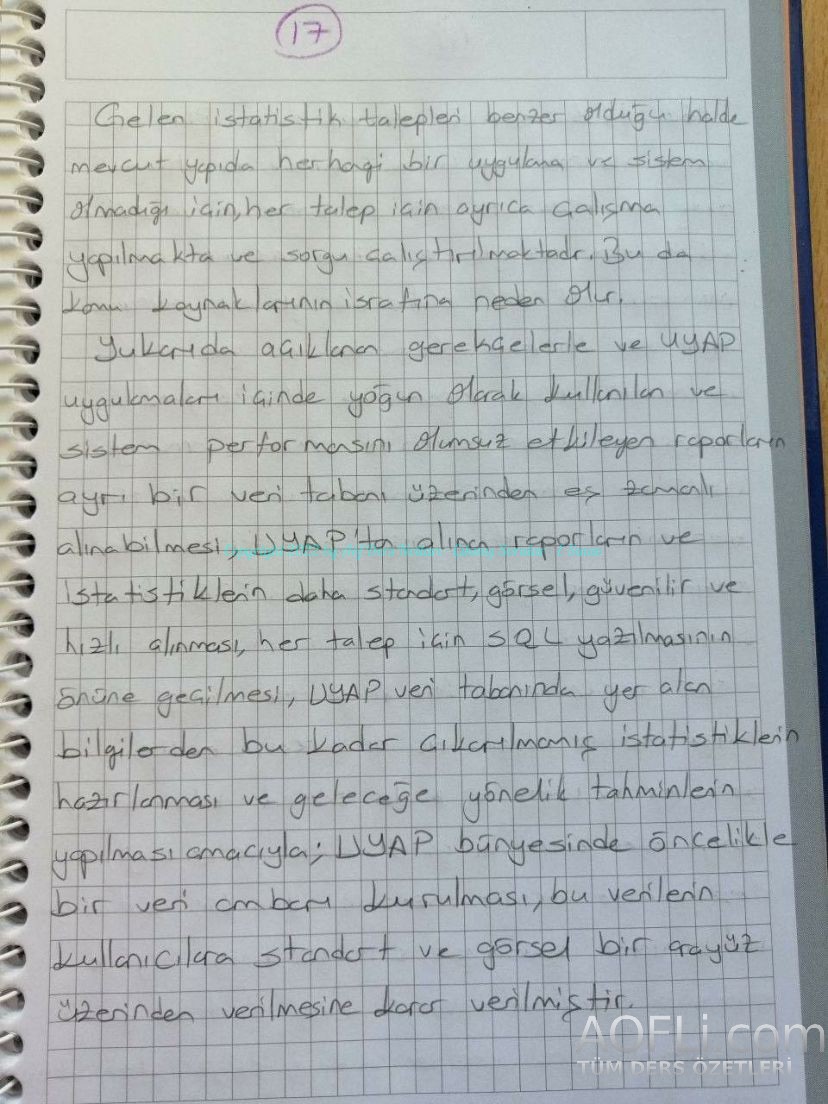 17
Gelen istatistik talepleri benzer olduğu halde
mevcut yapıda herhagi bir uygulama ve sistem
olmadığı için, her talep için ayrıca çalışma
yapılmakta ve sorgu çalıştırılmaktadır. Bu da
kamu kaynaklarının israfına neden olur.
Yukarıda açıklanan gerekçelerle ve UYAP
uygulamaları içinde yoğun olarak kullanılan ve
sistem performasını olumsuz etkileyen raporların
ayrı bir veri tabanı üzerinden eş zamanlı
alınabilmesi, UYAP'ta alınan raporların ve
istatistiklerin daha standart, görsel, güvenilir ve
hızlı alınması, her talep için SQL yazılmasının
önüne geçilmesi, UYAP veri tabanında yer alan
bilgilerden bu kadar çıkarılmamış istatistiklerin
hazırlanması ve geleceğe yönelik tahminlerin
yapılması amacıyla; UYAP bünyesinde öncelikle
bir veri ambarı kurulması, bu verilerin
kullanıcılara standart ve görsel bir arayüz
üzerinden verilmesine karar verilmiştir.
AOFLi.com
TÜM DERS ÖZETLERİ